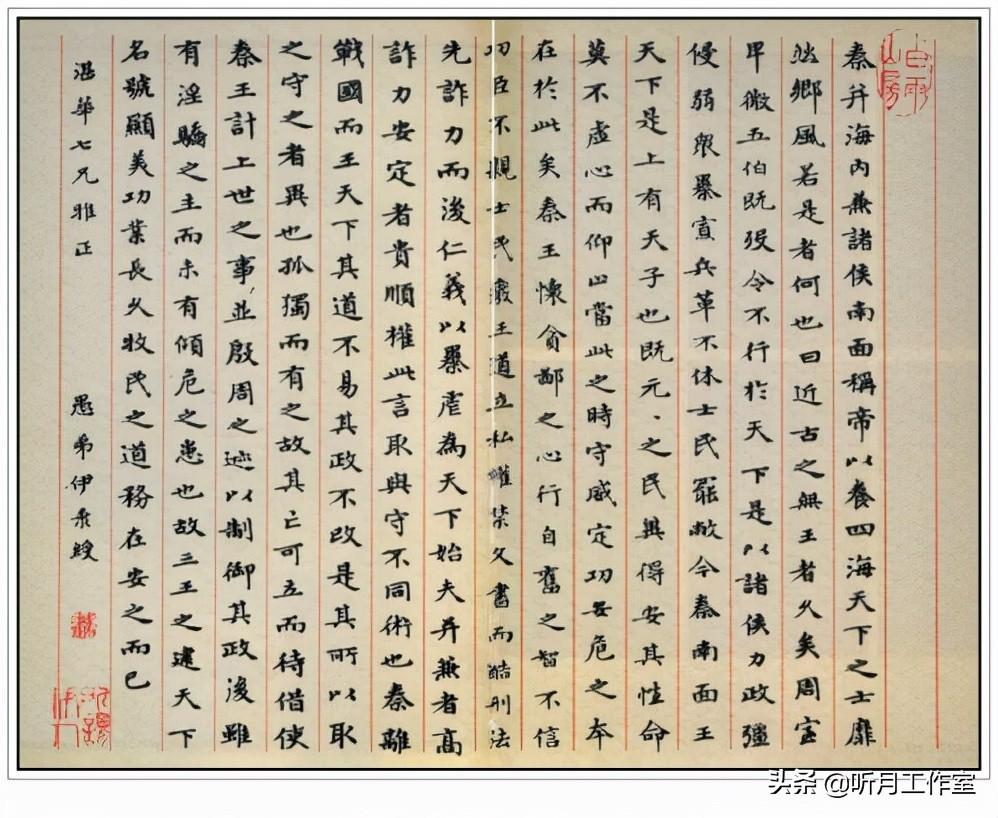 秦并海内兼諸侯南面稱帝以養四海天下之士靡
然鄉風若是者何也曰近古之無王者久矣周室
卑微五伯既歿令不行於天下是以諸侯力政彊
侵弱眾暴寡兵革不休士民罷敝今秦南面王
天下是上有天子也既元、之民冀得安其性命
莫不虛心而仰上當此之時守威定功安危之本
在於此矣秦王懷貪鄙之心行自奮之智不信
功臣不親士民廢王道立私權禁文書而酷刑法
先詐力而後仁義以暴虐為天下始夫并兼者高
詐力安定者貴順權此言取與守不同術也秦離
戰國而王天下其道不易其政不改是其所以取
之守之者異也孤獨而有之故其亡可立而待借使
秦王計上世之事並殷周之迹以制御其政後雖
有淫驕之主而未有傾危之患也故三王之建天下
名號顯美功業長久牧民之道務在安之而已
湛華七兄雅正 愚弟伊秉綬
头条 @听月工作室